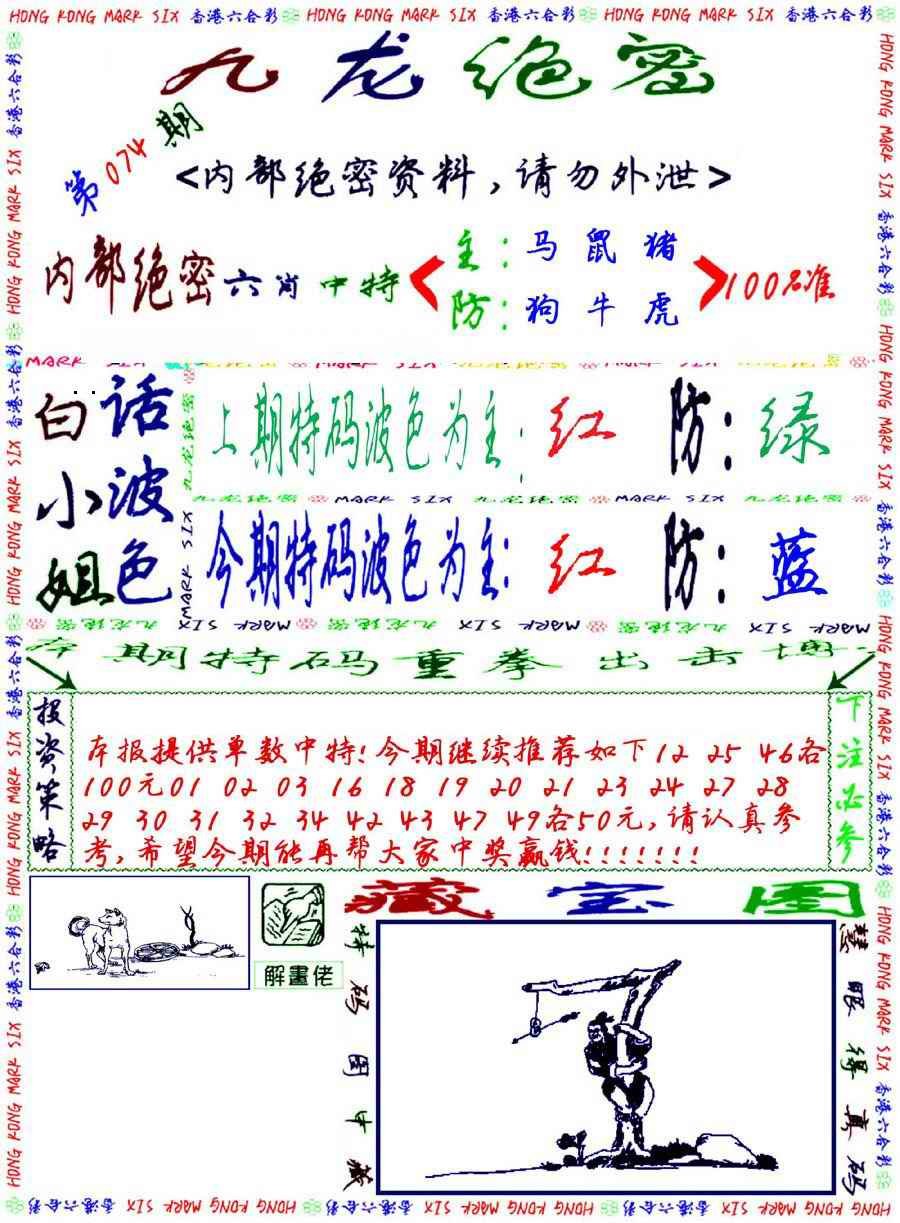 HONG KONG MARK SIX 香港六合彩 HONG KONG MARK SIX 香港六合彩 HONG KONG MARK SIX 香港六合彩
九龙绝密
第074期
<内部绝密资料,请勿外泄>
内部绝密六肖中特
主:马 鼠 猪
防:狗 牛 虎
100%准
白话
小波
姐色
上期特码波色为主:红 防:绿
九龙绝密 MARK SIX 九龙绝密 MARK SIX 九龙绝密
今期特码波色为主:红 防:蓝
MARK SIX 九龙绝密 MARK SIX 九龙绝密 MARK SIX
本期特码重拳出击博
投资策略
本报提供单数中特!今期继续推荐如下12 25 46各
100元01 02 03 16 18 19 20 21 23 24 27 28
29 30 31 32 34 42 43 47 49各50元,请认真参
考,希望今期能再帮大家中奖赢钱!!!!!!!
下注必参
解畫佬
藏宝图
特码图中藏
慧眼得真码
HONG KONG MARK SIX 香港六合彩 HONG KONG MARK SIX 香港六合彩